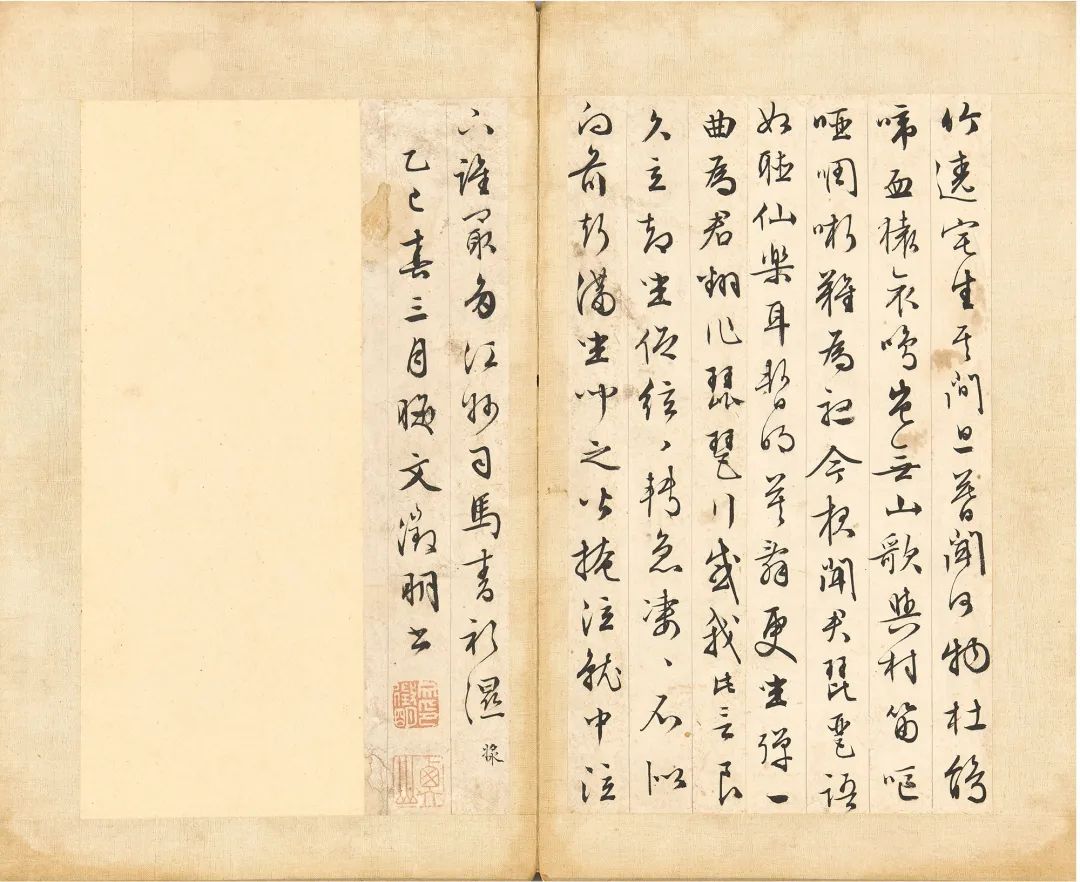 竹遶宅生其間旦暮聞何物杜鵑
啼血猿哀鳴豈無山歌與村笛嘔
啞啁哳難為聽今夜聞君琵琶語
如聽仙樂耳暫明莫辭更坐彈一
曲為君翻作琵琶行感我此言良
久立却坐促絃々轉急凄々不似
向前聲滿坐聞之皆掩泣就中泣
下誰最多江州司馬青衫濕
乙巳春三月晦文徵明書
文徵明印
衡山